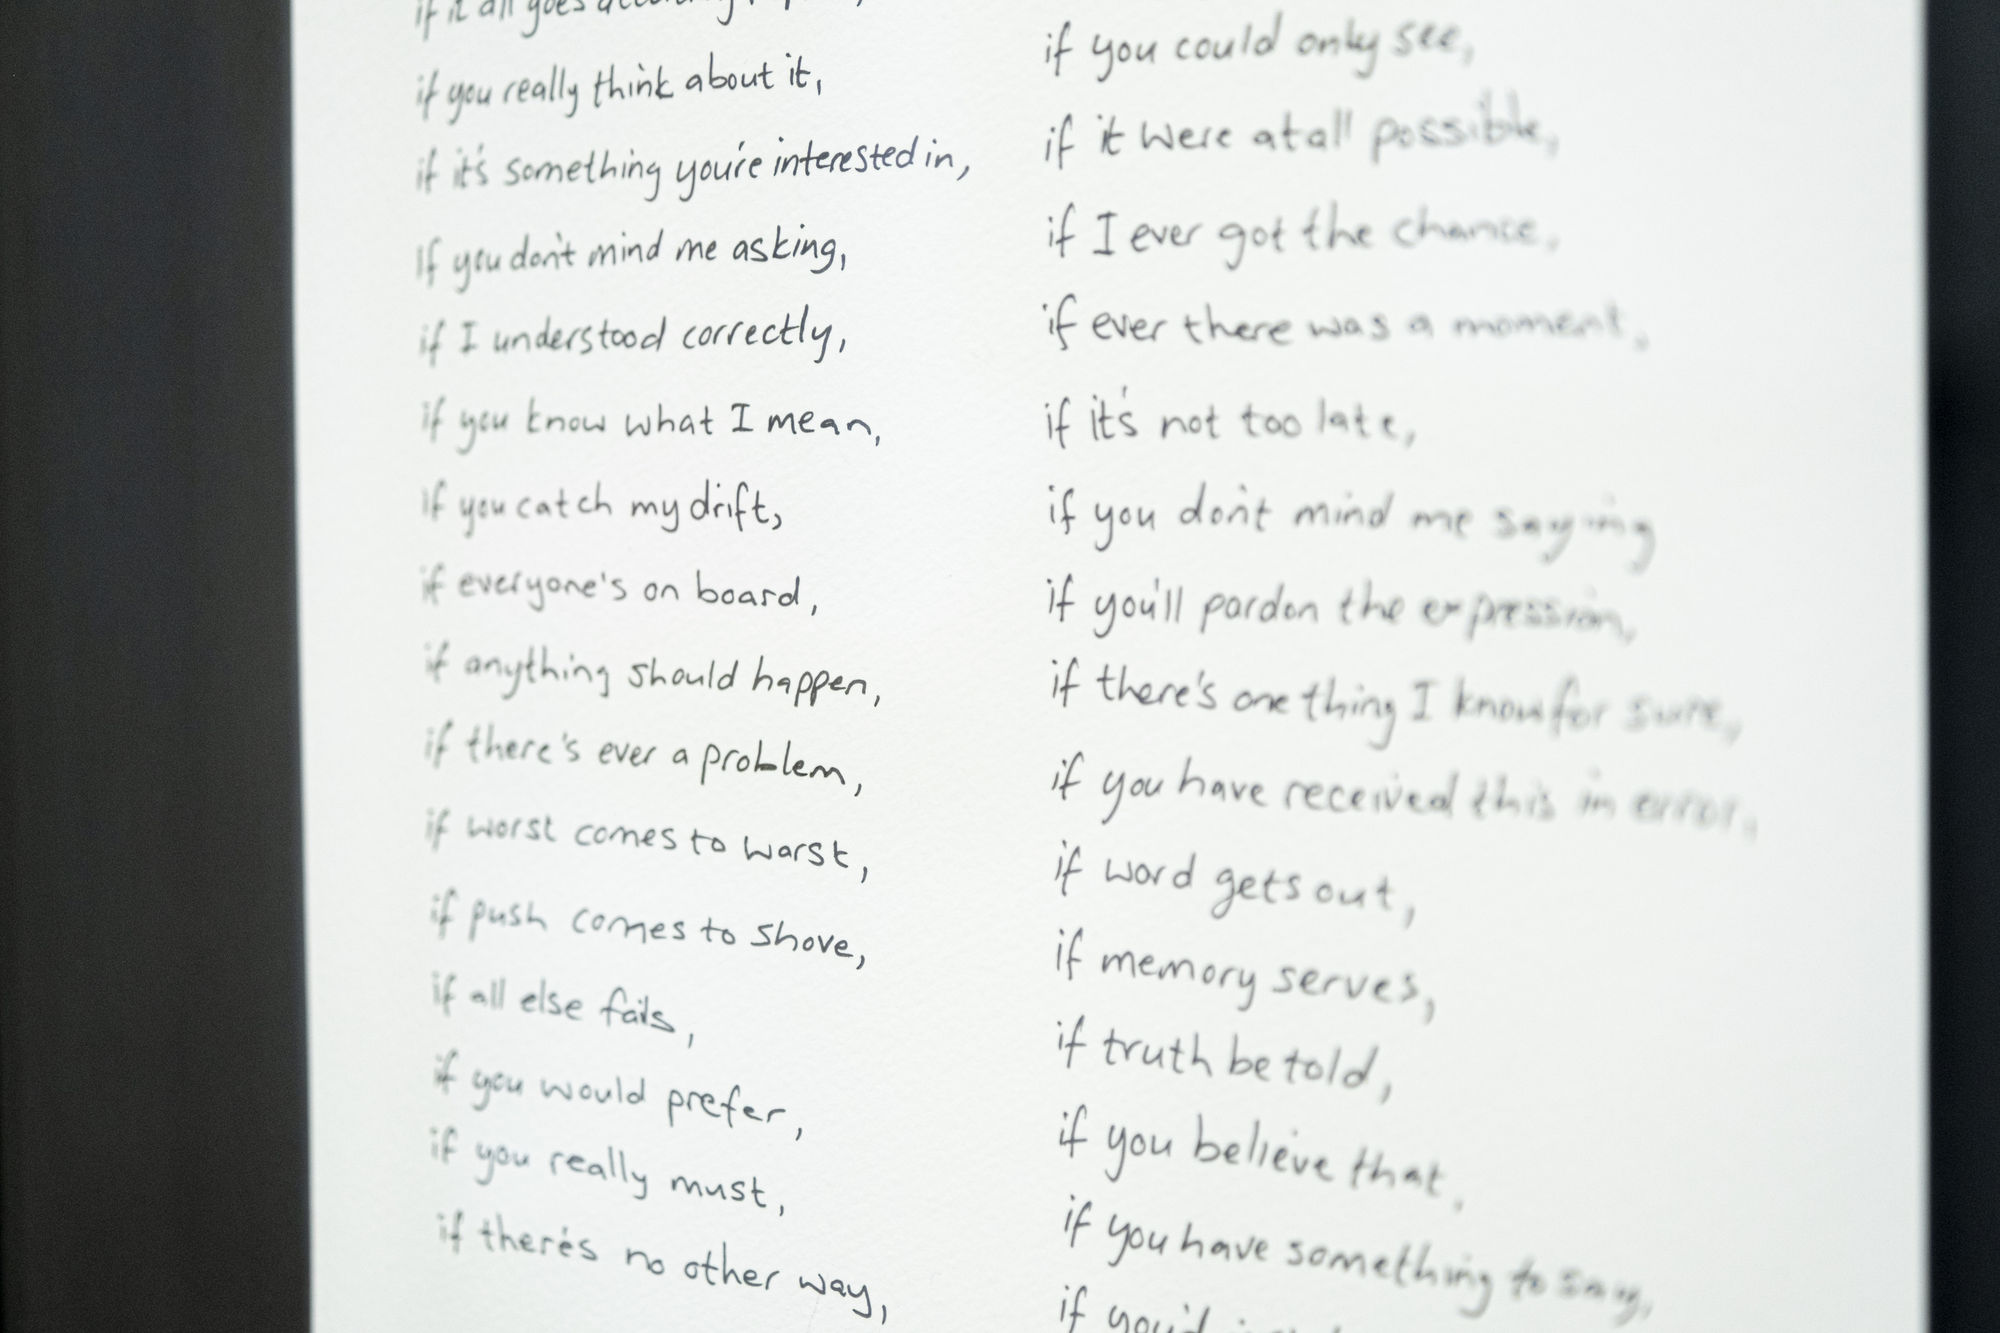 if it all goes according
if you really think about it,
if it's something you're interested in,
if you don't mind me asking,
if I understood correctly,
if you know what I mean,
if you catch my drift,
if everyone's on board,
if anything should happen,
if there's ever a problem,
if worst comes to warst,
if push comes to shove,
if all else fails,
if you would prefer,
if you really must,
if there's no other way,
if you could only see,
if it were at all possible,
if I ever got the chance,
if ever there was a moment,
if it's not too late,
if you don't mind me saying
if you'll pardon the expression,
if there's one thing I know for sure,
if you have received this in error,
if word gets out,
if memory serves,
if truth be told,
if you believe that,
if you have something to say,
if you'd